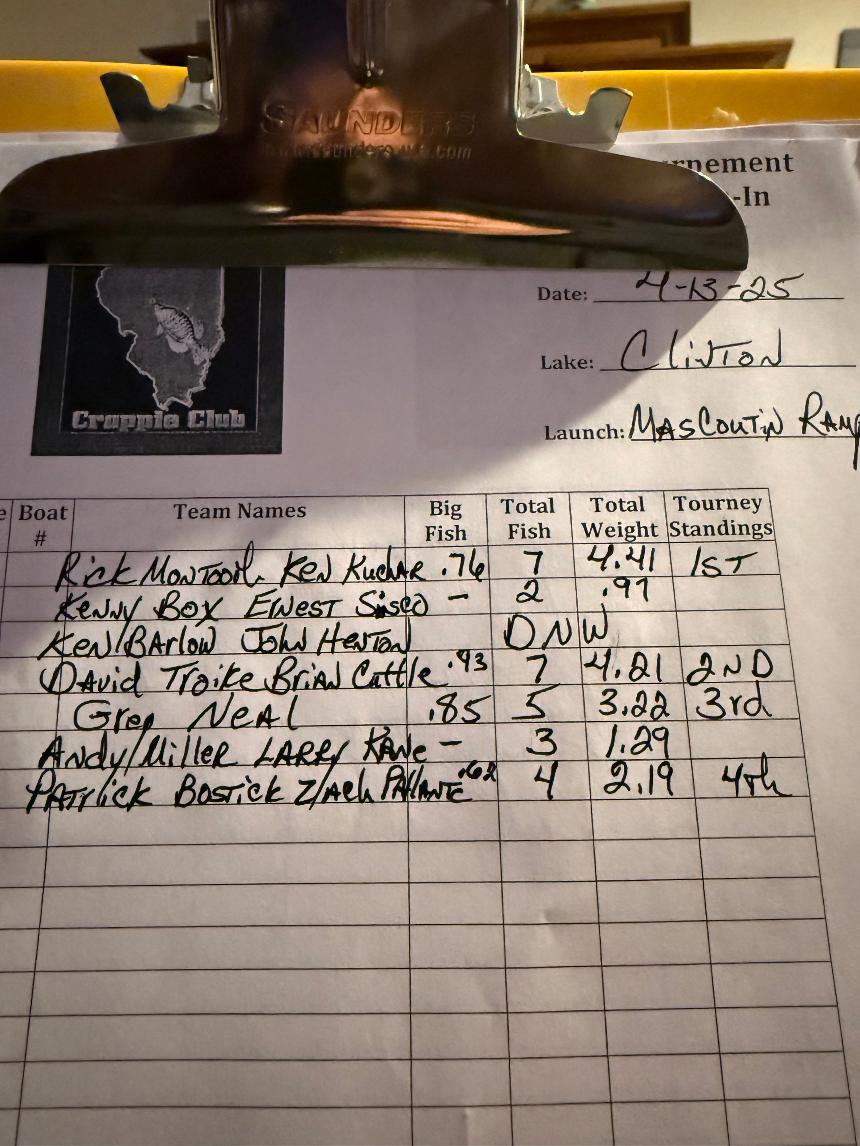 SAUNDERS
rnement
-In
Date: 4-13-25
Lake: CliNTON
Launch: MASCOUTIN RAMP
Crappie Club
e Boat # Team Names Big Fish Total Fish Total Weight Tourney Standings
Rick Ken Kuchar .76 7 4.41 1ST
Kenny Box Ernest Sisco - 2 .97
Ken Barlow John Henton DNW
David Troike Brian Cuttle .93 7 4.21 2ND
Greg Neal .85 5 3.22 3rd
Andy Miller Larry Kane - 3 1.29
Patrick Bostick Zach Pallante .62 4 2.19 4th